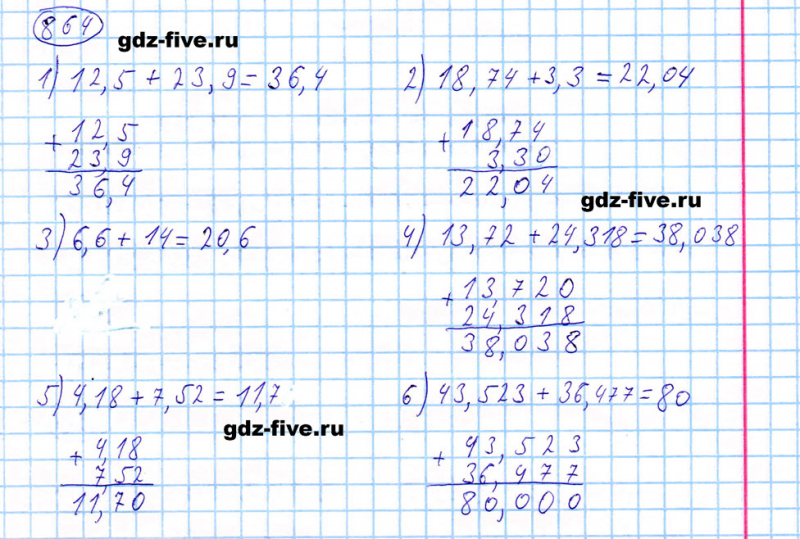 864
gdz-five.ru
1) 12,5 + 23,9 = 36,4
+ 12,5
23,9
36,4
2) 18,74 + 3,3 = 22,04
+ 18,74
3,30
22,04
gdz-five.ru
3) 6,6 + 14 = 20,6
4) 13,72 + 24,318 = 38,038
+ 13,720
24,318
38,038
5) 4,18 + 7,52 = 11,7
gdz-five.ru
+ 4,18
7,52
11,70
6) 43,523 + 36,477 = 80
+ 43,523
36,477
80,000